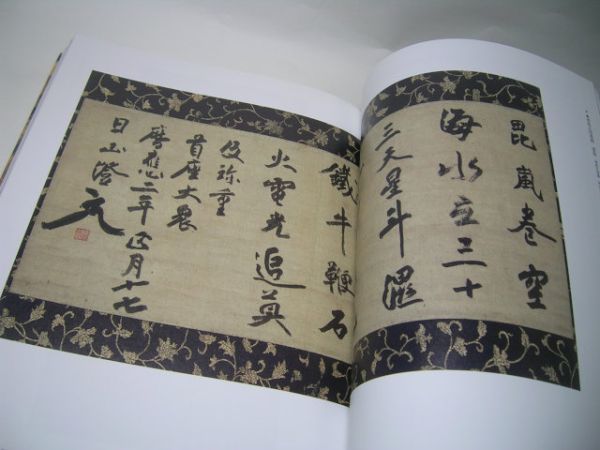 毘嵐巻空
海水立三十
三天星斗濕
鐵牛鞭石
火電光追莫
及珎重
首座大衆
暦應二年正月十七
日山澄